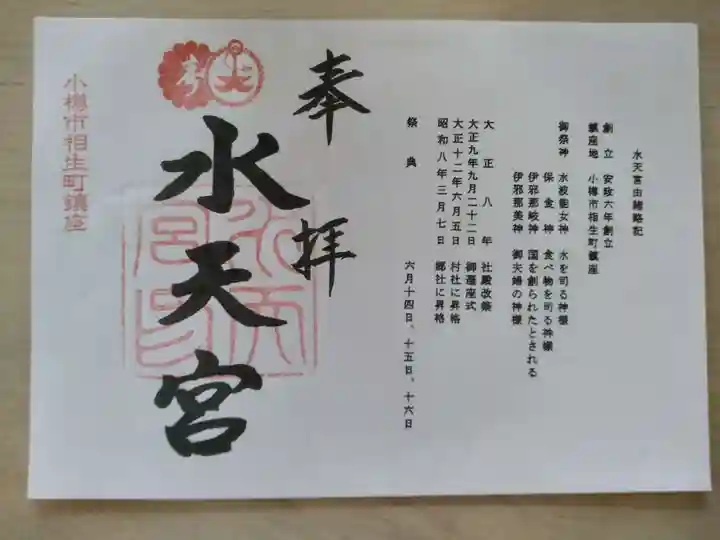 水天宮由緒略記
創立 安政六年創立
鎮座地 小樽市相生町鎮座
御祭神 水波能女神 水を司る神様
保食神 食べ物を司る神様
伊邪那岐神 国を創られたとされる
伊邪那美神 御夫婦の神様
大正八年 社殿改築
大正九年九月二十二日 御遷座式
大正十二年六月五日 村社に昇格
昭和八年三月七日 郷社に昇格
祭典 六月十四日、十五日、十六日
奉拝
水天宮
水天宮印
小樽市相生町鎮座